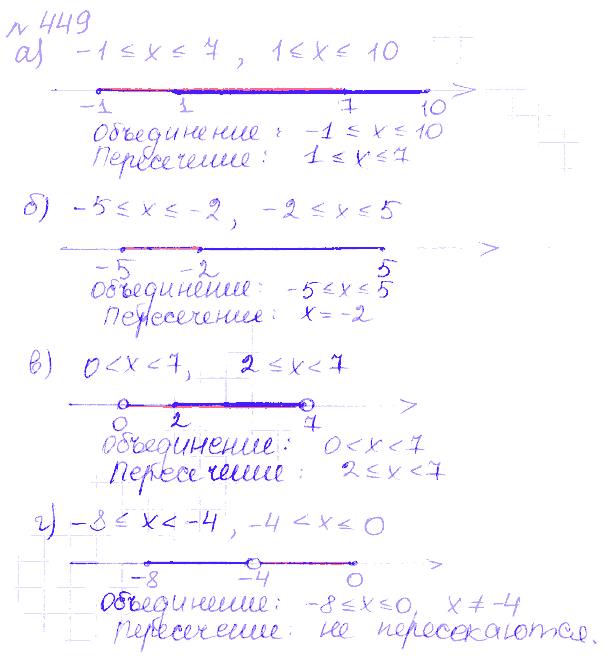 № 449
а) -1 ≤ x ≤ 7 , 1 ≤ x ≤ 10
-1 1 7 10
Объединение : -1 ≤ x ≤ 10
Пересечение : 1 ≤ x ≤ 7
б) -5 ≤ x ≤ -2 , -2 ≤ x ≤ 5
-5 -2 5
Объединение : -5 ≤ x ≤ 5
Пересечение : x = -2
в) 0 < x < 7 , 2 ≤ x < 7
0 2 7
Объединение : 0 < x < 7
Пересечение : 2 ≤ x < 7
г) -8 ≤ x < -4 , -4 < x ≤ 0
-8 -4 0
Объединение : -8 ≤ x ≤ 0, x ≠ -4
Пересечение : не пересекаются.